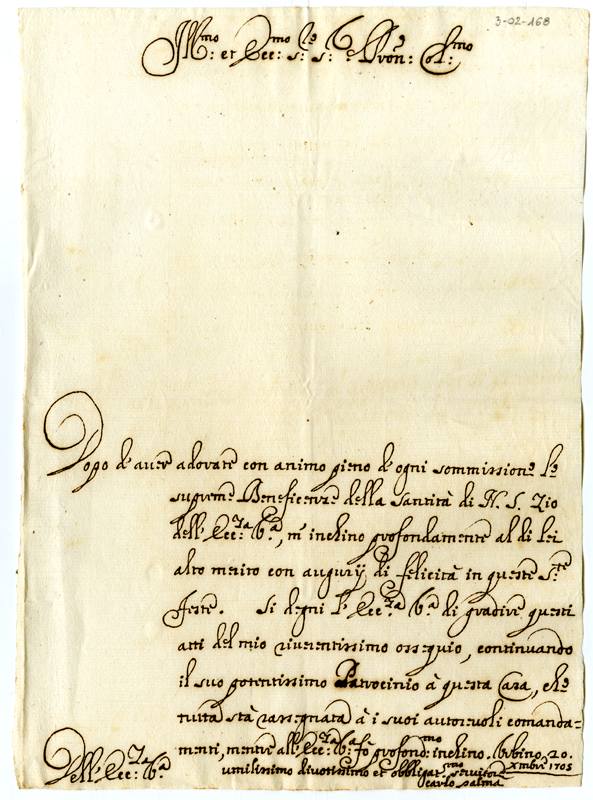 3-02-168
Ill:mo et Ecc:mo Sig:re Sig:re e Pron: Col:mo
Dopo d'aver adorate con animo pieno d'ogni sommissione le
supreme Beneficenze della Santità di N. S. Zio
dell'Ecc:za V:a, m'inchino profondamente al di lei
alto merito con augurÿ di felicità in queste S:te
Feste. Si degni l'Ecc:za V:a di gradire questi
atti del mio riverentissimo ossequio, continuando
il suo potentissimo Patrocinio à questa Casa, che
tutta stà rassegnata à i suoi autorevoli comanda=
menti, mentre all'Ecc:za V:a fò profond:mo inchino. Urbino 20.
Xmbre 1705
Dell'Ecc:za V:a
umilissimo divotissimo et obbligat:mo servitore
Carlo Palma